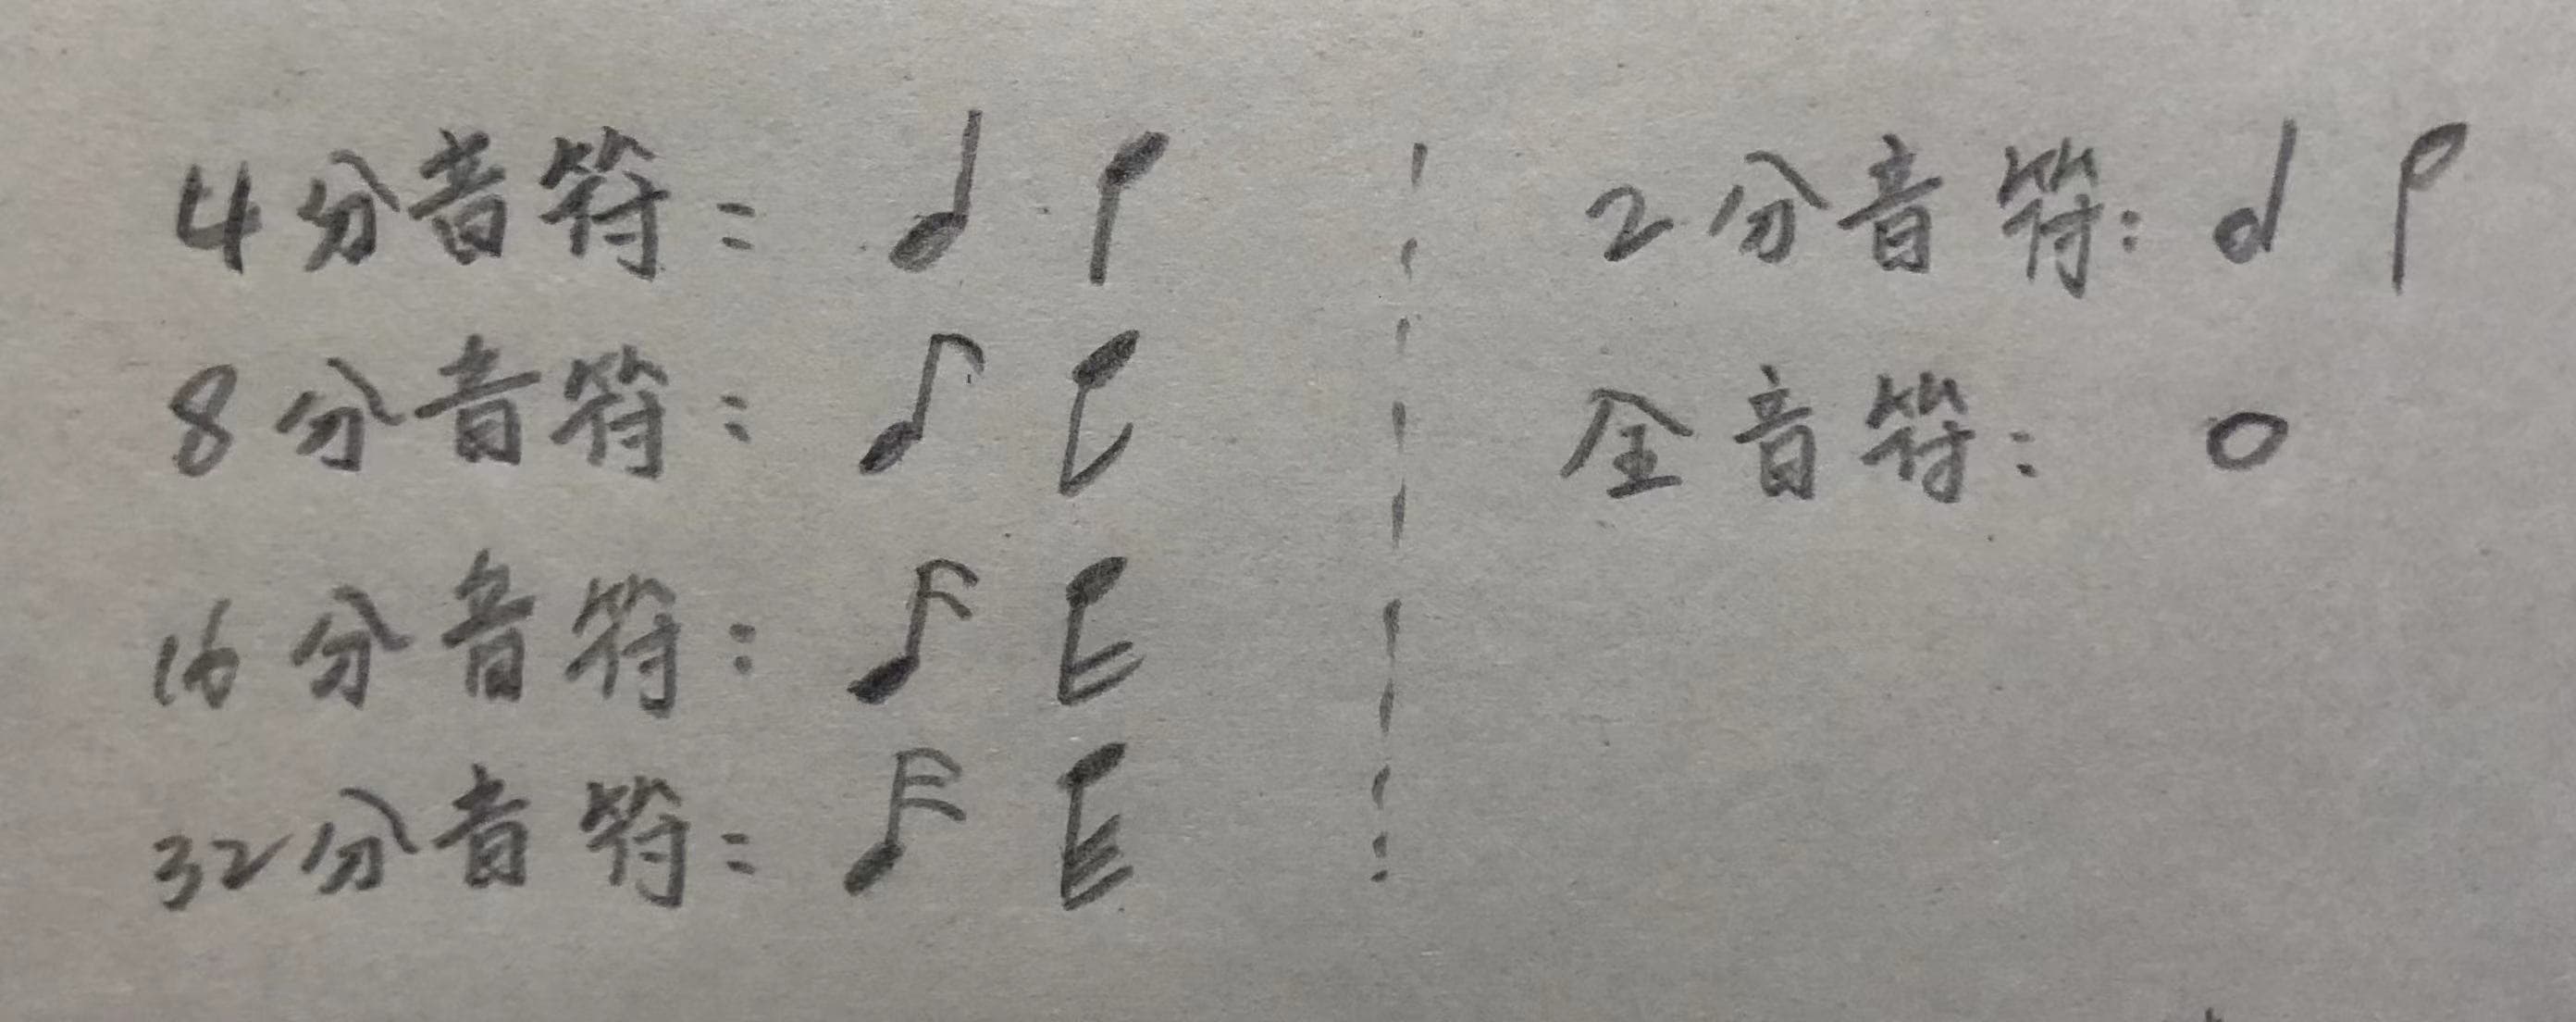 4分音符:
8分音符:
16分音符:
32分音符:
2分音符:
全音符: